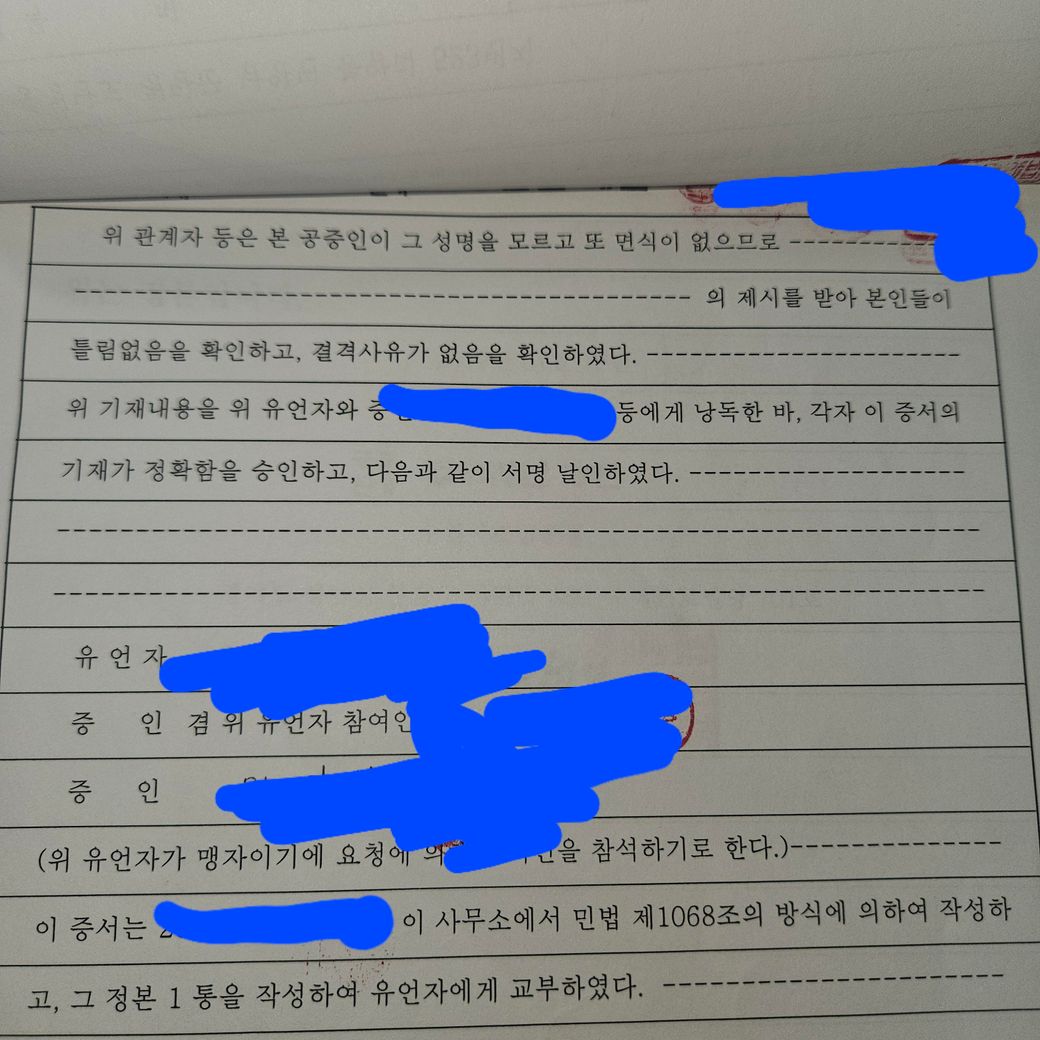 위 관계자 등은 본 공증인이 그 성명을 모르고 또 면식이 없으므로 -----------
--------------------------------------------------- 의 제시를 받아 본인들이
틀림없음을 확인하고, 결격사유가 없음을 확인하였다. --------------------------
위 기재내용을 위 유언자와 등에게 낭독한 바, 각자 이 증서의
기재가 정확함을 승인하고, 다음과 같이 서명 날인하였다. -----------------------
----------------------------------------------------------------------------
----------------------------------------------------------------------------
유 언 자
증 인 겸 위 유언자 참여인
증 인
(위 유언자가 맹자이기에 요청에 참석하기로 한다.)------------------
이 증서는 이 사무소에서 민법 제1068조의 방식에 의하여 작성하
고, 그 정본 1 통을 작성하여 유언자에게 교부하였다. ----------------------------